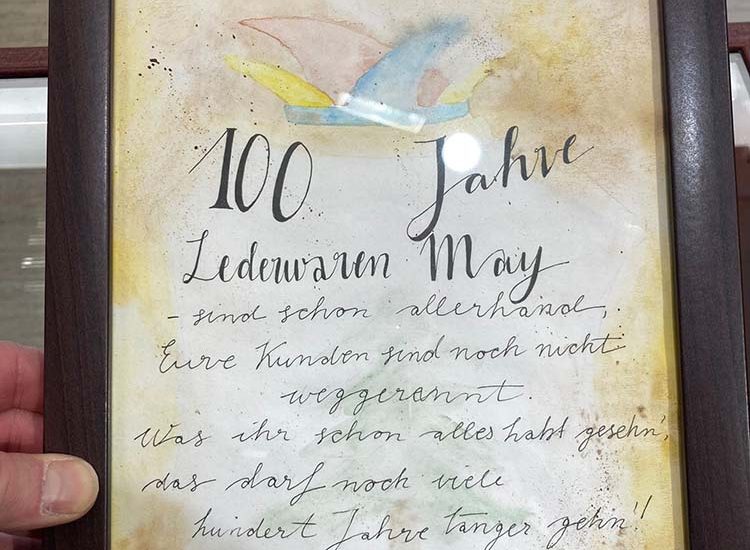 100 Jahre
Lederwaren May
- sind schon allerhand,
Eure Kunden sind noch nicht
weggerannt.
Was ihr schon alles habt gesehn',
das darf noch viele
hundert Jahre länger gehn'!